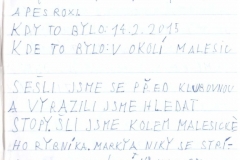 A PES ROXI.
KDY TO BYLO: 14.2.2015
KDE TO BYLO: V OKOLÍ MALEŠIC
SEŠLI JSME SE PŘED KLUBOVNOU
A VYRAZILI JSME HLEDAT
STOPY. ŠLI JSME KOLEM MALEŠICKÉ
HO RYBNÍKA. MARKYA NIKY SE STŘÍ-